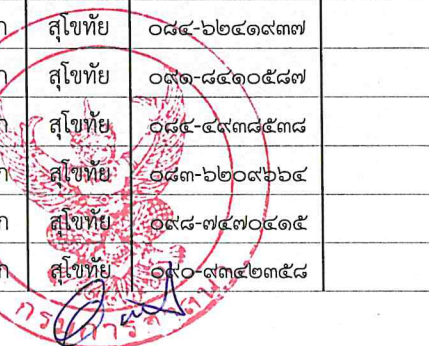 ก สุโขทัย ๐๘๔-๖๒๔๑๙๓๗
ก สุโขทัย ๐๙๑-๘๔๑๐๕๘๗
ก สุโขทัย ๐๘๔-๔๙๓๘๕๓๘
ก สุโขทัย ๐๘๓-๖๒๐๙๖๖๔
ก สุโขทัย ๐๙๘-๗๔๗๐๔๑๕
ก สุโขทัย ๐๙๐-๙๓๔๒๓๕๘